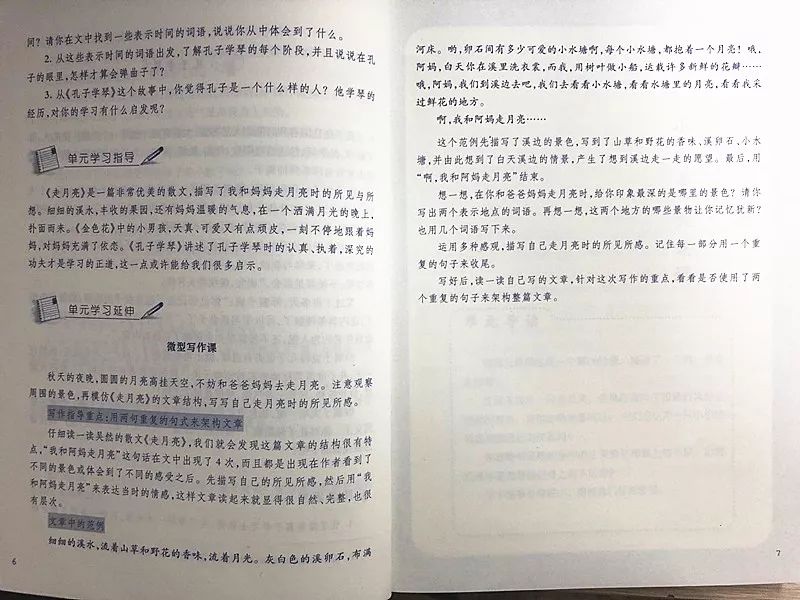 间？请你在文中找到一些表示时间的词语，说说你从中体会到了什么。
2. 从这些表示时间的词语出发，了解孔子学琴的每个阶段，并且说说在孔
子的眼里，怎样才算会弹曲子了？
3. 从《孔子学琴》这个故事中，你觉得孔子是一个什么样的人？他学琴的
经历，对你的学习有什么启发呢？
单元学习指导
《走月亮》是一篇非常优美的散文，描写了我和妈妈走月亮时的所见与所
想。细细的溪水，丰收的果园，还有妈妈温暖的气息，在一个洒满月光的晚上，
扑面而来。《金色花》中的小男孩，天真、可爱又有点顽皮，一刻不停地跟着妈
妈，对妈妈充满了依恋。《孔子学琴》讲述了孔子学琴时的认真、执着，深究的
功夫才是学习的正道，这一点或许能给我们很多启示。
单元学习延伸
微型写作课
秋天的夜晚，圆圆的月亮高挂天空，不妨和爸爸妈妈去走月亮。注意观察
周围的景色，再模仿《走月亮》的文章结构，写写自己走月亮时的所见所感。
写作指导重点：用两句重复的句式来架构文章
仔细读一读吴然的散文《走月亮》，我们就会发现这篇文章的结构很有特
点，“我和阿妈走月亮”这句话在文中出现了 4 次，而且都是出现在作者看到了
不同的景色或体会到了不同的感受之后。先描写自己的所见所感，然后用“我
和阿妈走月亮”来表达当时的情感，这样文章读起来就显得很自然、完整，也很
有层次。
文章中的范例
细细的溪水，流着山草和野花的香味，流着月光。灰白色的溪卵石，布满
6
河床。哟，卵石间有多少可爱的小水塘啊，每个小水塘，都抱着一个月亮！哦，
阿妈，白天你在溪里洗衣裳，而我，用树叶做小船，运载许多新鲜的花瓣……
哦，阿妈，我们到溪边去吧，我们去看看小水塘，看看水塘里的月亮，看看我采
过鲜花的地方。
啊，我和阿妈走月亮……
这个范例先描写了溪边的景色，写到了山草和野花的香味、溪卵石、小水
塘，并由此想到了白天溪边的情景，产生了想到溪边走一走的愿望。最后，用
“啊，我和阿妈走月亮”结束。
想一想，在你和爸爸妈妈走月亮时，给你印象最深的是哪里的景色？请你
写出两个表示地点的词语。再想一想，这两个地方的哪些景物让你记忆犹新？
也用几个词语写下来。
运用多种感观，描写自己走月亮时的所见所感。记住每一部分用一个重
复的句子来收尾。
写好后，读一读自己写的文章，针对这次写作的重点，看看是否使用了两
个重复的句子来架构整篇文章。
7